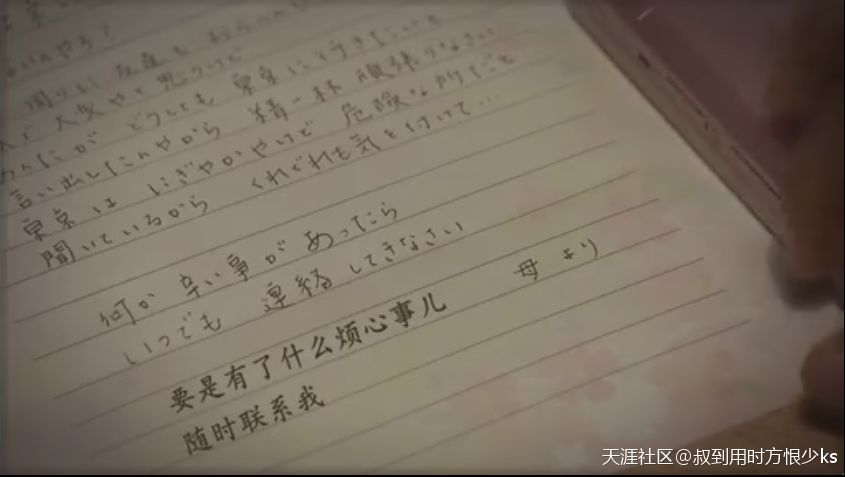 ないんやろ?
周りに友達も
人で大変やと思うけど
あんたが どうしても 東京に行きたいと
言い出したんやから 精一杯 頑張りなさい
東京は にぎやかやけど 危険な所だと
聞いているから くれぐれも気を付けて…
何か 辛い事が あったら
いつでも 連絡してきなさい
母より
要是有了什么烦心事儿
随时联系我
天涯社区@叔到用时方恨少ks